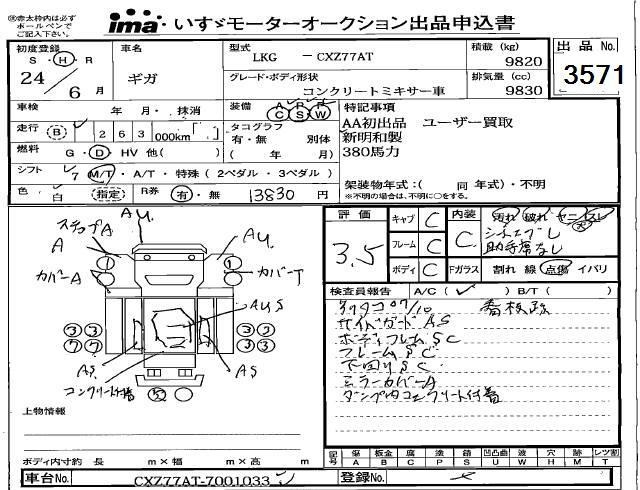 ※赤太枠内は必ず
ボールペンで
ご記入下さい。
ima いすゞモーターオークション出品申込書
初度登録
S・H・R
24年 6月
車名
ギガ
型式
LKG - CXZ77AT
グレード・ボディ形状
コンクリートミキサー車
積載 (kg)
9820
排気量 (cc)
9830
出品 No.
3571
車検 年 月・抹消
装備 A P R
C S W
走行 B 263 000km
タコグラフ
有・無 別体
( 年 )
燃料 G・D・HV 他( )
シフト 7 M/T・A/T・特殊(2ペダル・3ペダル)
色 白 指定 R券 有・無 13830 円
特記事項
AA初出品 ユーザー買取
新明和製
380馬力
架装物年式:( 同 年式)・不明
※不明の場合は、不明に○をする。
ステップA
A
AU
AU
カバーA
カバーT
AUS
AS
AS
コンクリート付着
上物情報
ボディ内寸約 長 m×幅 m×高 m
車台No. CXZ77AT-7001033
評価
3.5
キャブ C
フレーム C
ボディ C
内装 C
汚れ 破れ ヤニ スレ
助手席なし
Fガラス 割れ 線 点傷 イバリ
検査員報告 A/C( ✓ ) B/T( )
サイドガード AS
ボディフレームSC
フレームSC
下回りSC
ミラーカバーA
コンクリート付着
記号 傷 板金 腐 塗 錆 凹凸曲 波 穴 跡 レンズ割
A B C P S U W H M T
登録No.